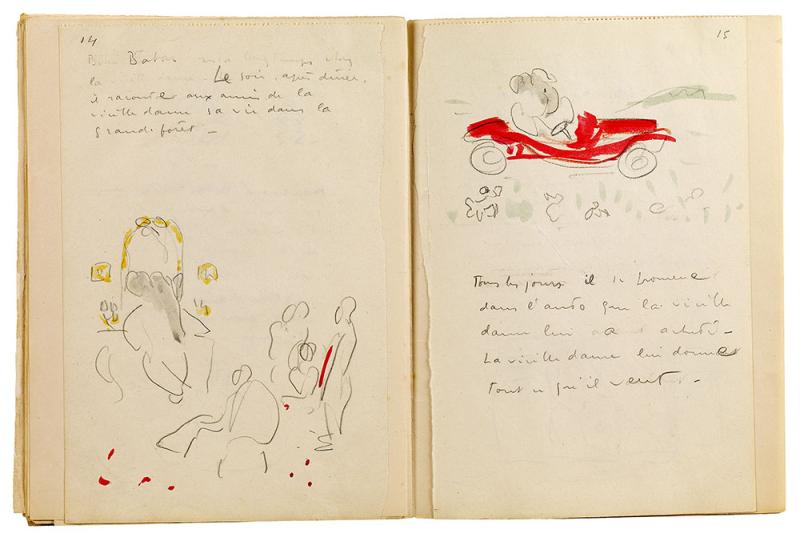 14
Babar
la Le soir, après dîner,
il raconte aux amis de la
vieille dame sa vie dans la
grande forêt –
15
Tous les jours il se promène
dans l'auto que la vieille
dame lui a acheté –
La vieille dame lui donne
tout ce qu'il veut. –